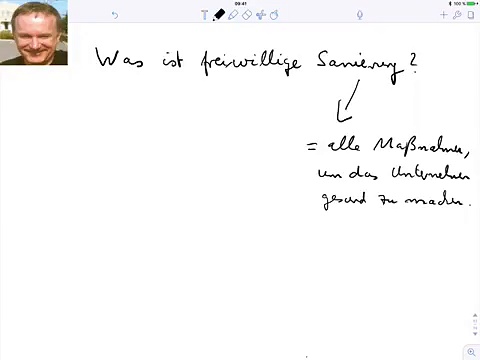 09:41
100 %
Was ist freiwillige Sanierung?
= alle Maßnahmen,
um das Unternehmen
gesund zu machen.